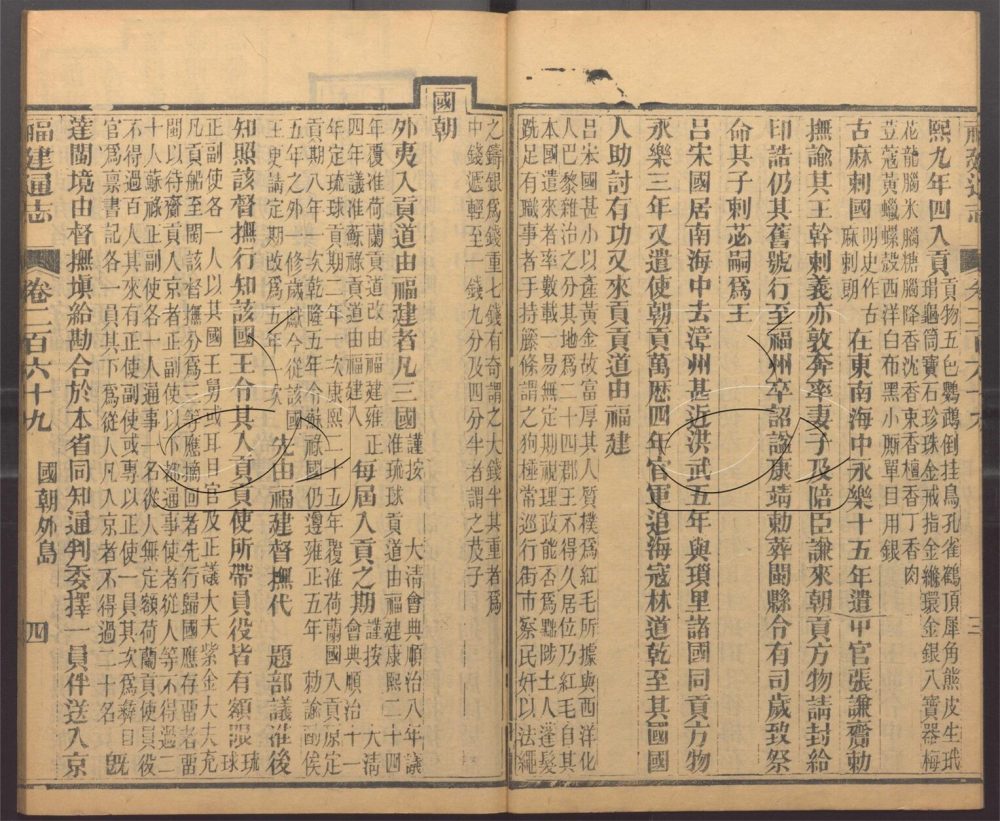 福建通志 卷二百六十九 三
熙九年四入貢貢物五色鸚鵡倒挂鳥孔雀鶴頂犀角熊皮生玳
瑁龜筒寶石珍珠金戒指金縧環金銀八寶器梅
花龍腦米腦糖腦降香沈香束香檀香丁香肉
荳蔻黃蠟螺殼西洋白布黑小廝單目用銀
古麻剌國明史作古麻剌朗在東南海中永樂十五年遣中官張謙齎勅
撫諭其王幹剌義亦敦奔率妻子及陪臣謙來朝貢方物請封給
印誥仍其舊號行至福州卒詔諡康靖勅葬閩縣令有司歲致祭
命其子剌苾嗣爲王
呂宋國居南海中去漳州甚近洪武五年與瑣里諸國同貢方物
永樂三年又遣使朝貢萬歷四年官軍追海寇林道乾至其國國
人助討有功又來貢貢道由福建
呂宋國甚小以產黃金故富厚其人質樸爲紅毛所據與西洋化
人巴黎雜治之分其地爲二十四郡王不得久居位乃紅毛自其
本國遣來者率數載一易無定期視理政能否爲黜陟土人蓬髮
跣足有職事者手持籐條謂之狗極常巡行街市察民奸以法繩
之鑄銀爲錢重七錢有奇謂之大錢半其重者爲
中錢遞輕至一錢九分及四分半者謂之茇子
國朝
外夷入貢道由福建者凡三國謹按 大清會典順治八年議
准琉球貢道由福建康熙二十四
年覆准荷蘭貢道改由福建雍正
四年議准蘇祿貢道由福建入每屆入貢之期謹按 大清
會典順治十一
年定琉球貢期二年一次康熙二十五年覆准荷蘭國入貢原定
貢期八年一次乾隆五年令蘇祿國仍遵雍正五年 勅諭酌俟
五年之外一修歲獻今從該國
王更請定期改爲五年一次先由福建督撫代 題部議准後
知照該督撫行知該國王令其入貢貢使所帶員役皆有額限琉球
正副使各一人以其國王舅或耳目官及正議大夫紫金大夫充
凡貢船至閩該督撫分爲三等應摘回者先行歸國應存留者留
閩以待齎貢人京者正副使以下都通事使者從人等不得過二
十人蘇祿正副使各一人通事一名從人無定額荷蘭貢使員役
不得過百人其來有正使副使或專以正使一員其次爲總目
官爲稟書記各一員其下爲從人凡入京者不得過二十名旣
達閩境由督撫塡給勘合於本省同知通判委擇一員伴送入京
福建通志 卷二百六十九 國朝外島 四